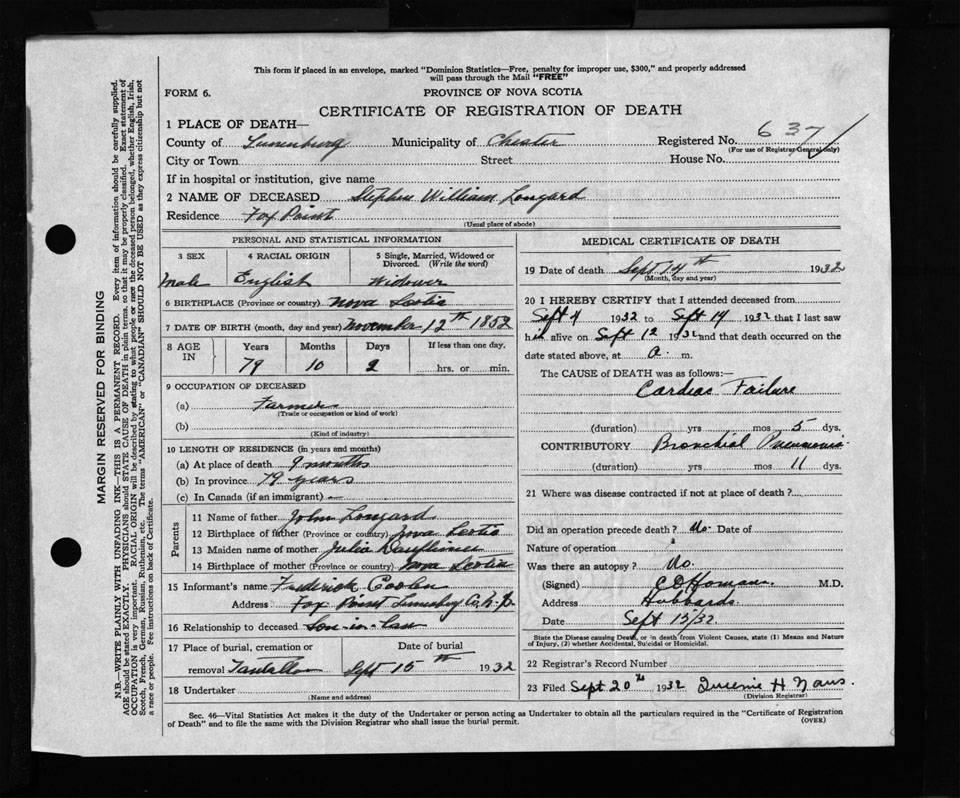 This form if placed in an envelope, marked "Dominion Statistics—Free, penalty for improper use, $300," and properly addressed
will pass through the Mail "FREE"
FORM 6.
PROVINCE OF NOVA SCOTIA
CERTIFICATE OF REGISTRATION OF DEATH
1 PLACE OF DEATH—
County of Lunenburg Municipality of Chester Registered No. 637
(For use of Registrar General only)
City or Town Street House No.
If in hospital or institution, give name
2 NAME OF DECEASED Stephen William Longard
Residence Fox Point
(Usual place of abode)
PERSONAL AND STATISTICAL INFORMATION
3 SEX 4 RACIAL ORIGIN 5 Single, Married, Widowed or
Divorced. (Write the word)
Male English Widower
6 BIRTHPLACE (Province or country) Nova Scotia
7 DATE OF BIRTH (month, day and year) November 12th 1852
8 AGE IN Years Months Days If less than one day.
79 10 2 hrs. or min.
9 OCCUPATION OF DECEASED
(a) Farmer
(Trade or occupation or kind of work)
(b)
(Kind of industry)
10 LENGTH OF RESIDENCE (in years and months)
(a) At place of death 9 months
(b) In province 79 years
(c) In Canada (if an immigrant) —
Parents
11 Name of father John Longard
12 Birthplace of father (Province or country) Nova Scotia
13 Maiden name of mother Julia
14 Birthplace of mother (Province or country) Nova Scotia
15 Informant's name Frederick
Address Fox Point Lunenburg Co. N.S.
16 Relationship to deceased Son-in-law
17 Place of burial, cremation or Date of burial
removal Tantallon Sept 15th 1932
18 Undertaker
(Name and address)
MEDICAL CERTIFICATE OF DEATH
19 Date of death Sept 14th 1932
(Month, day and year)
20 I HEREBY CERTIFY that I attended deceased from
Sept 4 1932 to Sept 14 1932 that I last saw
him alive on Sept 12 1932 and that death occurred on the
date stated above, at a. m.
The CAUSE of DEATH was as follows:—
Cardiac Failure
(duration) yrs mos 5 dys.
CONTRIBUTORY Bronchial Pneumonia
(duration) yrs mos 11 dys.
21 Where was disease contracted if not at place of death?
Did an operation precede death? No Date of
Nature of operation
Was there an autopsy? No.
(Signed) M.D.
Address Hubbards
Sept 15/32.
State the Disease causing Death, or in death from Violent Causes, state (1) Means and Nature
of Injury, (2) whether Accidental, Suicidal or Homicidal.
22 Registrar's Record Number
23 Filed Sept 20th 1932 H
(Division Registrar)
Sec. 46—Vital Statistics Act makes it the duty of the Undertaker or person acting as Undertaker to obtain all the particulars required in the "Certificate of Registration
of Death" and to file the same with the Division Registrar who shall issue the burial permit.
(OVER)
MARGIN RESERVED FOR BINDING
N.B.—WRITE PLAINLY WITH UNFADING INK—THIS IS A PERMANENT RECORD. Every item of information should be carefully supplied.
AGE should be stated EXACTLY. PHYSICIANS should STATE CAUSE OF DEATH in plain terms, so that it may be properly classified. Exact statement of
OCCUPATION is very important. RACIAL ORIGIN will be described by stating to what people or race the deceased person belonged, whether English, Irish,
Scotch, French, German, Russian, Ruthenian, etc. The terms "AMERICAN" or "CANADIAN" SHOULD NOT BE USED as they express citizenship but not
a race or people. See instructions on back of Certificate.